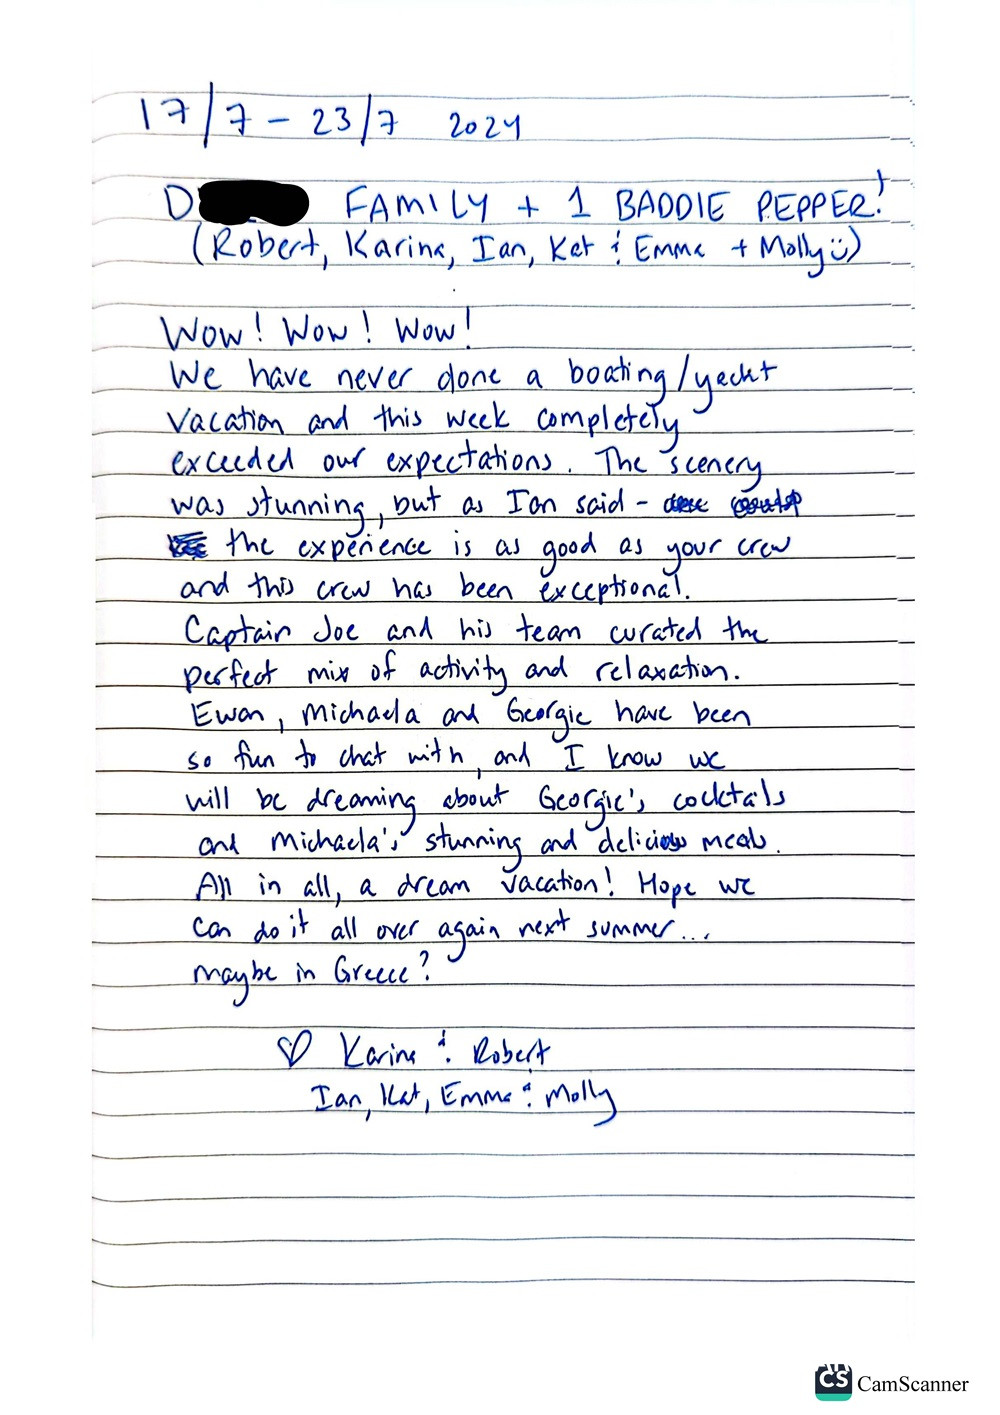 17/7 - 23/7 2024
D FAMILY + 1 BADDIE PEPPER!
(Robert, Karina, Ian, Kat & Emma + Molly :))
Wow! Wow! Wow!
We have never done a boating/yacht
vacation and this week completely
exceeded our expectations. The scenery
was stunning, but as Ian said -
the experience is as good as your crew
and this crew has been exceptional.
Captain Joe and his team curated the
perfect mix of activity and relaxation.
Ewan, Michaela and Georgie have been
so fun to chat with, and I know we
will be dreaming about Georgie's cocktails
and Michaela's stunning and delicious meals.
All in all, a dream vacation! Hope we
can do it all over again next summer...
maybe in Greece?
♡ Karina & Robert
Ian, Kat, Emma & Molly
CS CamScanner